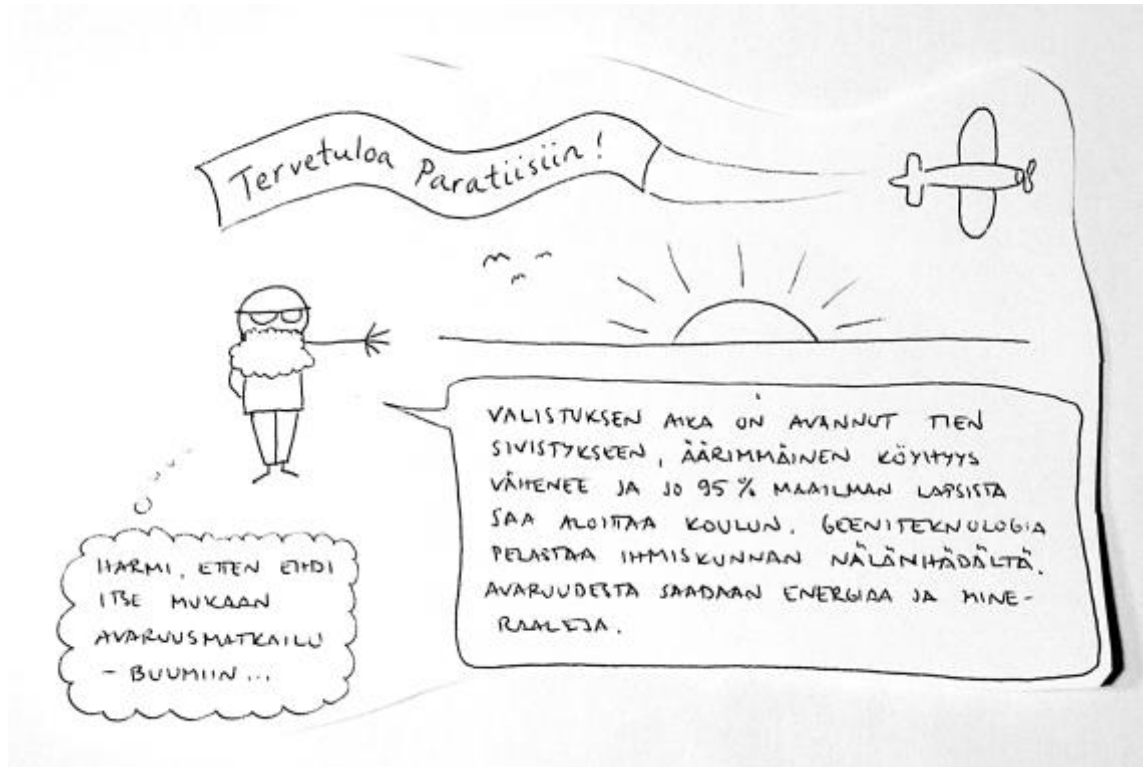 Tervetuloa Paratiisiin!
VALISTUKSEN AIKA ON AVANNUT TIEN
SIVISTYKSEEN, ÄÄRIMMÄINEN KÖYHYYS
VÄHENEE JA JO 95 % MAAILMAN LAPSISTA
SAA ALOITTAA KOULUN. GEENITEKNOLOGIA
PELASTAA IHMISKUNNAN NÄLÄNHÄDÄLTÄ.
AVARUUDESTA SAADAAN ENERGIAA JA MINE-
RAALEJA.
HARMI, ETTEN EHDI
ITSE MUKAAN
AVARUUSMATKAILU
- BUUMIIN...